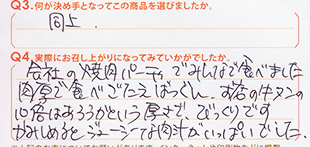 Q3.何が決め手となってこの商品を選びましたか。
同上.
Q4.実際にお召し上がりになってみていかがでしたか。
会社の焼肉パーティでみんなで食べました
肉厚で食べごたえばつぐん、お店の牛タンの
10倍はあろうかという厚さで、びっくりです
かみしめるとジューシーな肉汁がいっぱいでした.